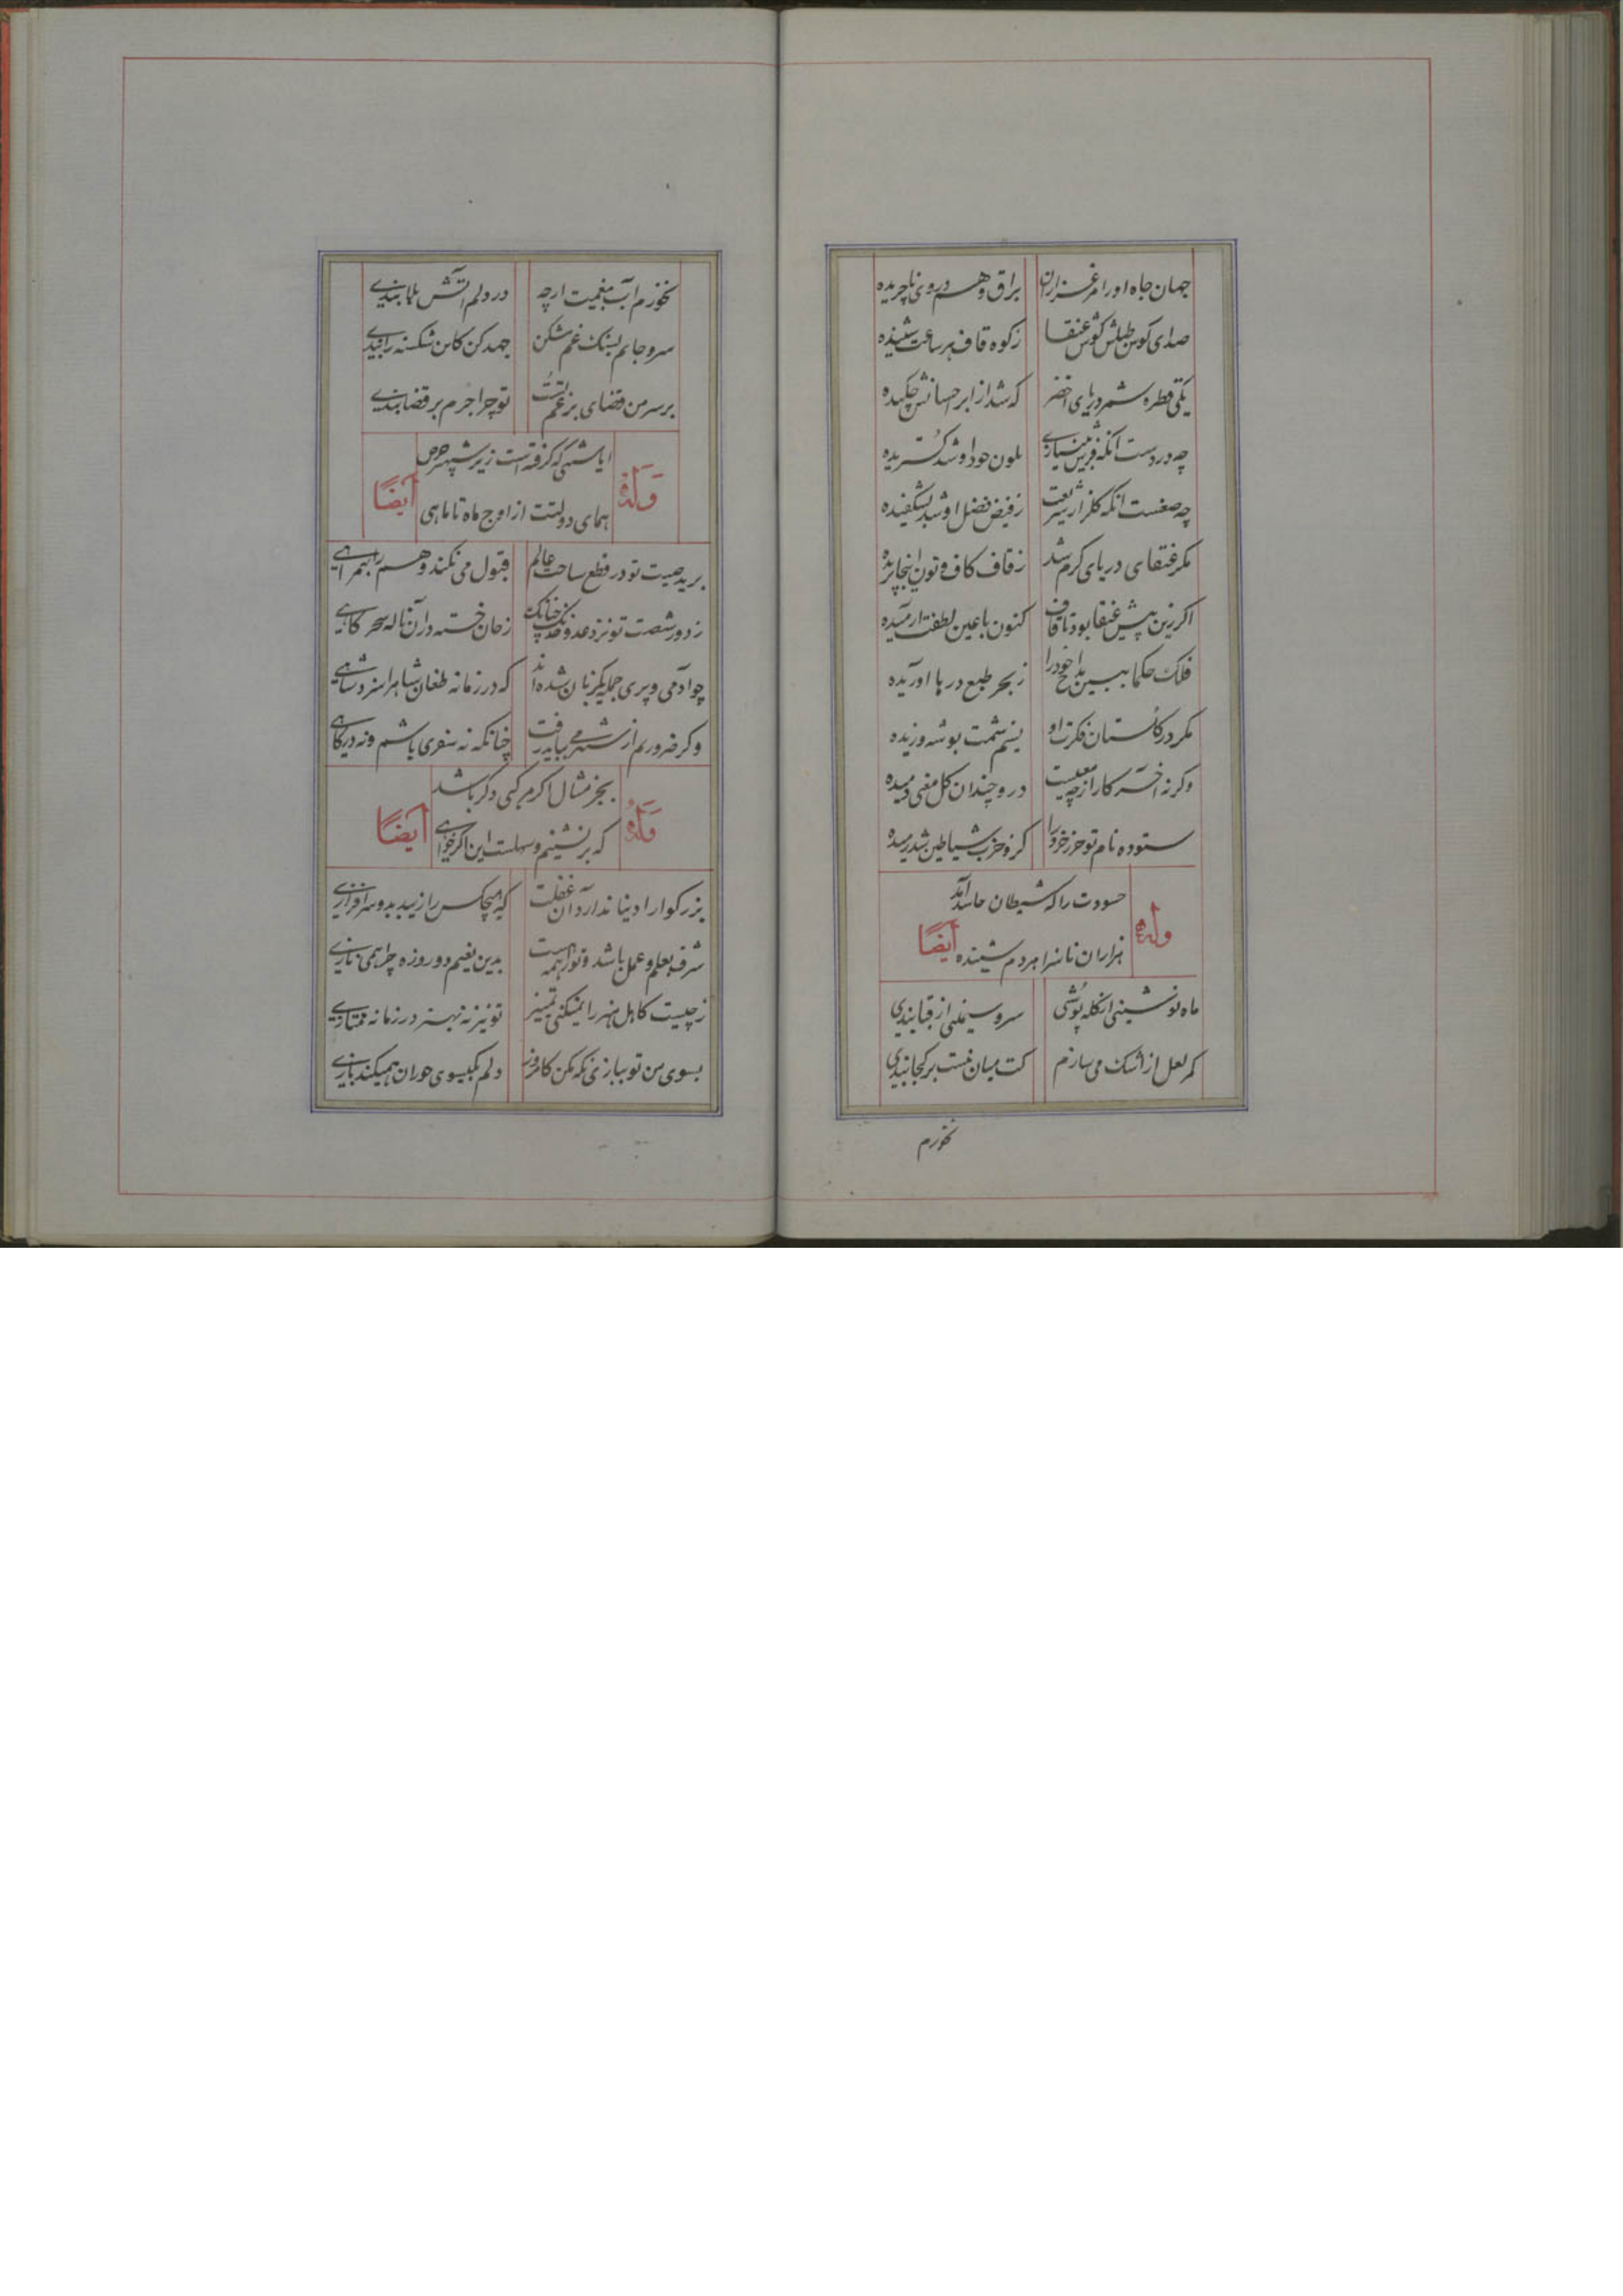 جهان جاه او را مرغزاران براق وهم در وی ناچریده
صدای کوس طبلش گوش عنقا ز کوه قاف هر ساعت شنیده
یکی قطره شمر دریای اخضر که شد از ابر احسانش چکیده
چه وردست آنکه فرش بلون جود او شد گستریده
چه صنعست آنکه گلزار شریعت ز فیض فضل او شد بشکفیده
مکر عنقای دریای کرم شد ز قاف کاف و نون اینجا پریده
اکر زین پیش عنقا بود تا قاف کنون با عین لطفت آرمیده
فلک حکما ببین مداح خود را ز بحر طبع درها آوریده
مکر در گلستان فکرت او نسیم شمت بوشه وزیده
وکرنه آخر کار از چه معنیست در و چندان کل معنی دمیده
ستوده نام تو حرز خرد را کزو حزب شیاطین شد رمیده
وله ایضاً
حسودت را که شیطان حاسد آمد
هزاران ناسزا مردم شنیده
ماه نو شینی از کله پوشی سرو سیمینی از قبا بندی
کمر لعل از اشک می سازم کت میان نیست بر کجا بندی
نخورم
نخورم آب بیغمیت ارچه در دلم آتش بلا بندی
سر و جانم بسنک غم مشکن جهد کن کاین شکسته را بندی
بر سر من قضای بد غم تست تو چرا جرم بر قضا بندی
وله ایضاً
ایا شهی که گرفته است زیر شهپر حرص
همای دولتت از اوج ماه تا ماهی
برید صیت تو در قطع ساحت عالم قبول می نکند وهم را بهمراهی
ز دور شصت تو نزد عدو خدنک چنانک ز جان خسته در آن ناله سحرگاهی
چو آدمی و پری جمله یکزبان شده اند که در زمانه طغان شاه را سزد شاهی
وکر ضرورتم از شهر می بباید رفت چنانکه نه سفری باشم و نه درگاهی
وله ایضاً
بجز مثال اکرم مرکبی دکر باشد
که برنشینم و سهلست این اکر خواهی
بزرکوارا دنیا ندارد آن عظمت که هیچکس را زیبد بدو سرافرازی
شرف بعلم و عمل باشد و ترا همه هست بدین نعیم دو روزه چرا همی نازی
ز چیست کاهل هنر را نمیکنی تمییز تو نیز نه بهنر در زمانه ممتازی
بسوی من تو ببازی نکه مکن کامروز دلم بگیسوی حوران همیکند بازی